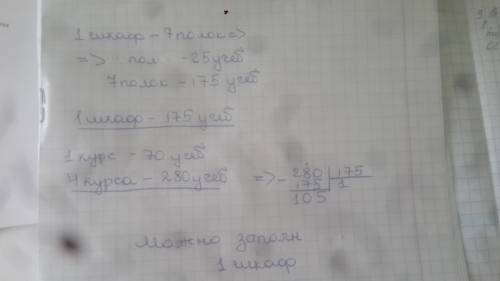 1 шкаф - 7 полок =>
=> пол - 25 учеб
7 полок - 175 учеб
1 шкаф - 175 учеб
1 курс - 70 учеб
4 курса - 280 учеб => - 280 | 175
175 1
105
Можно заполн
1 шкаф